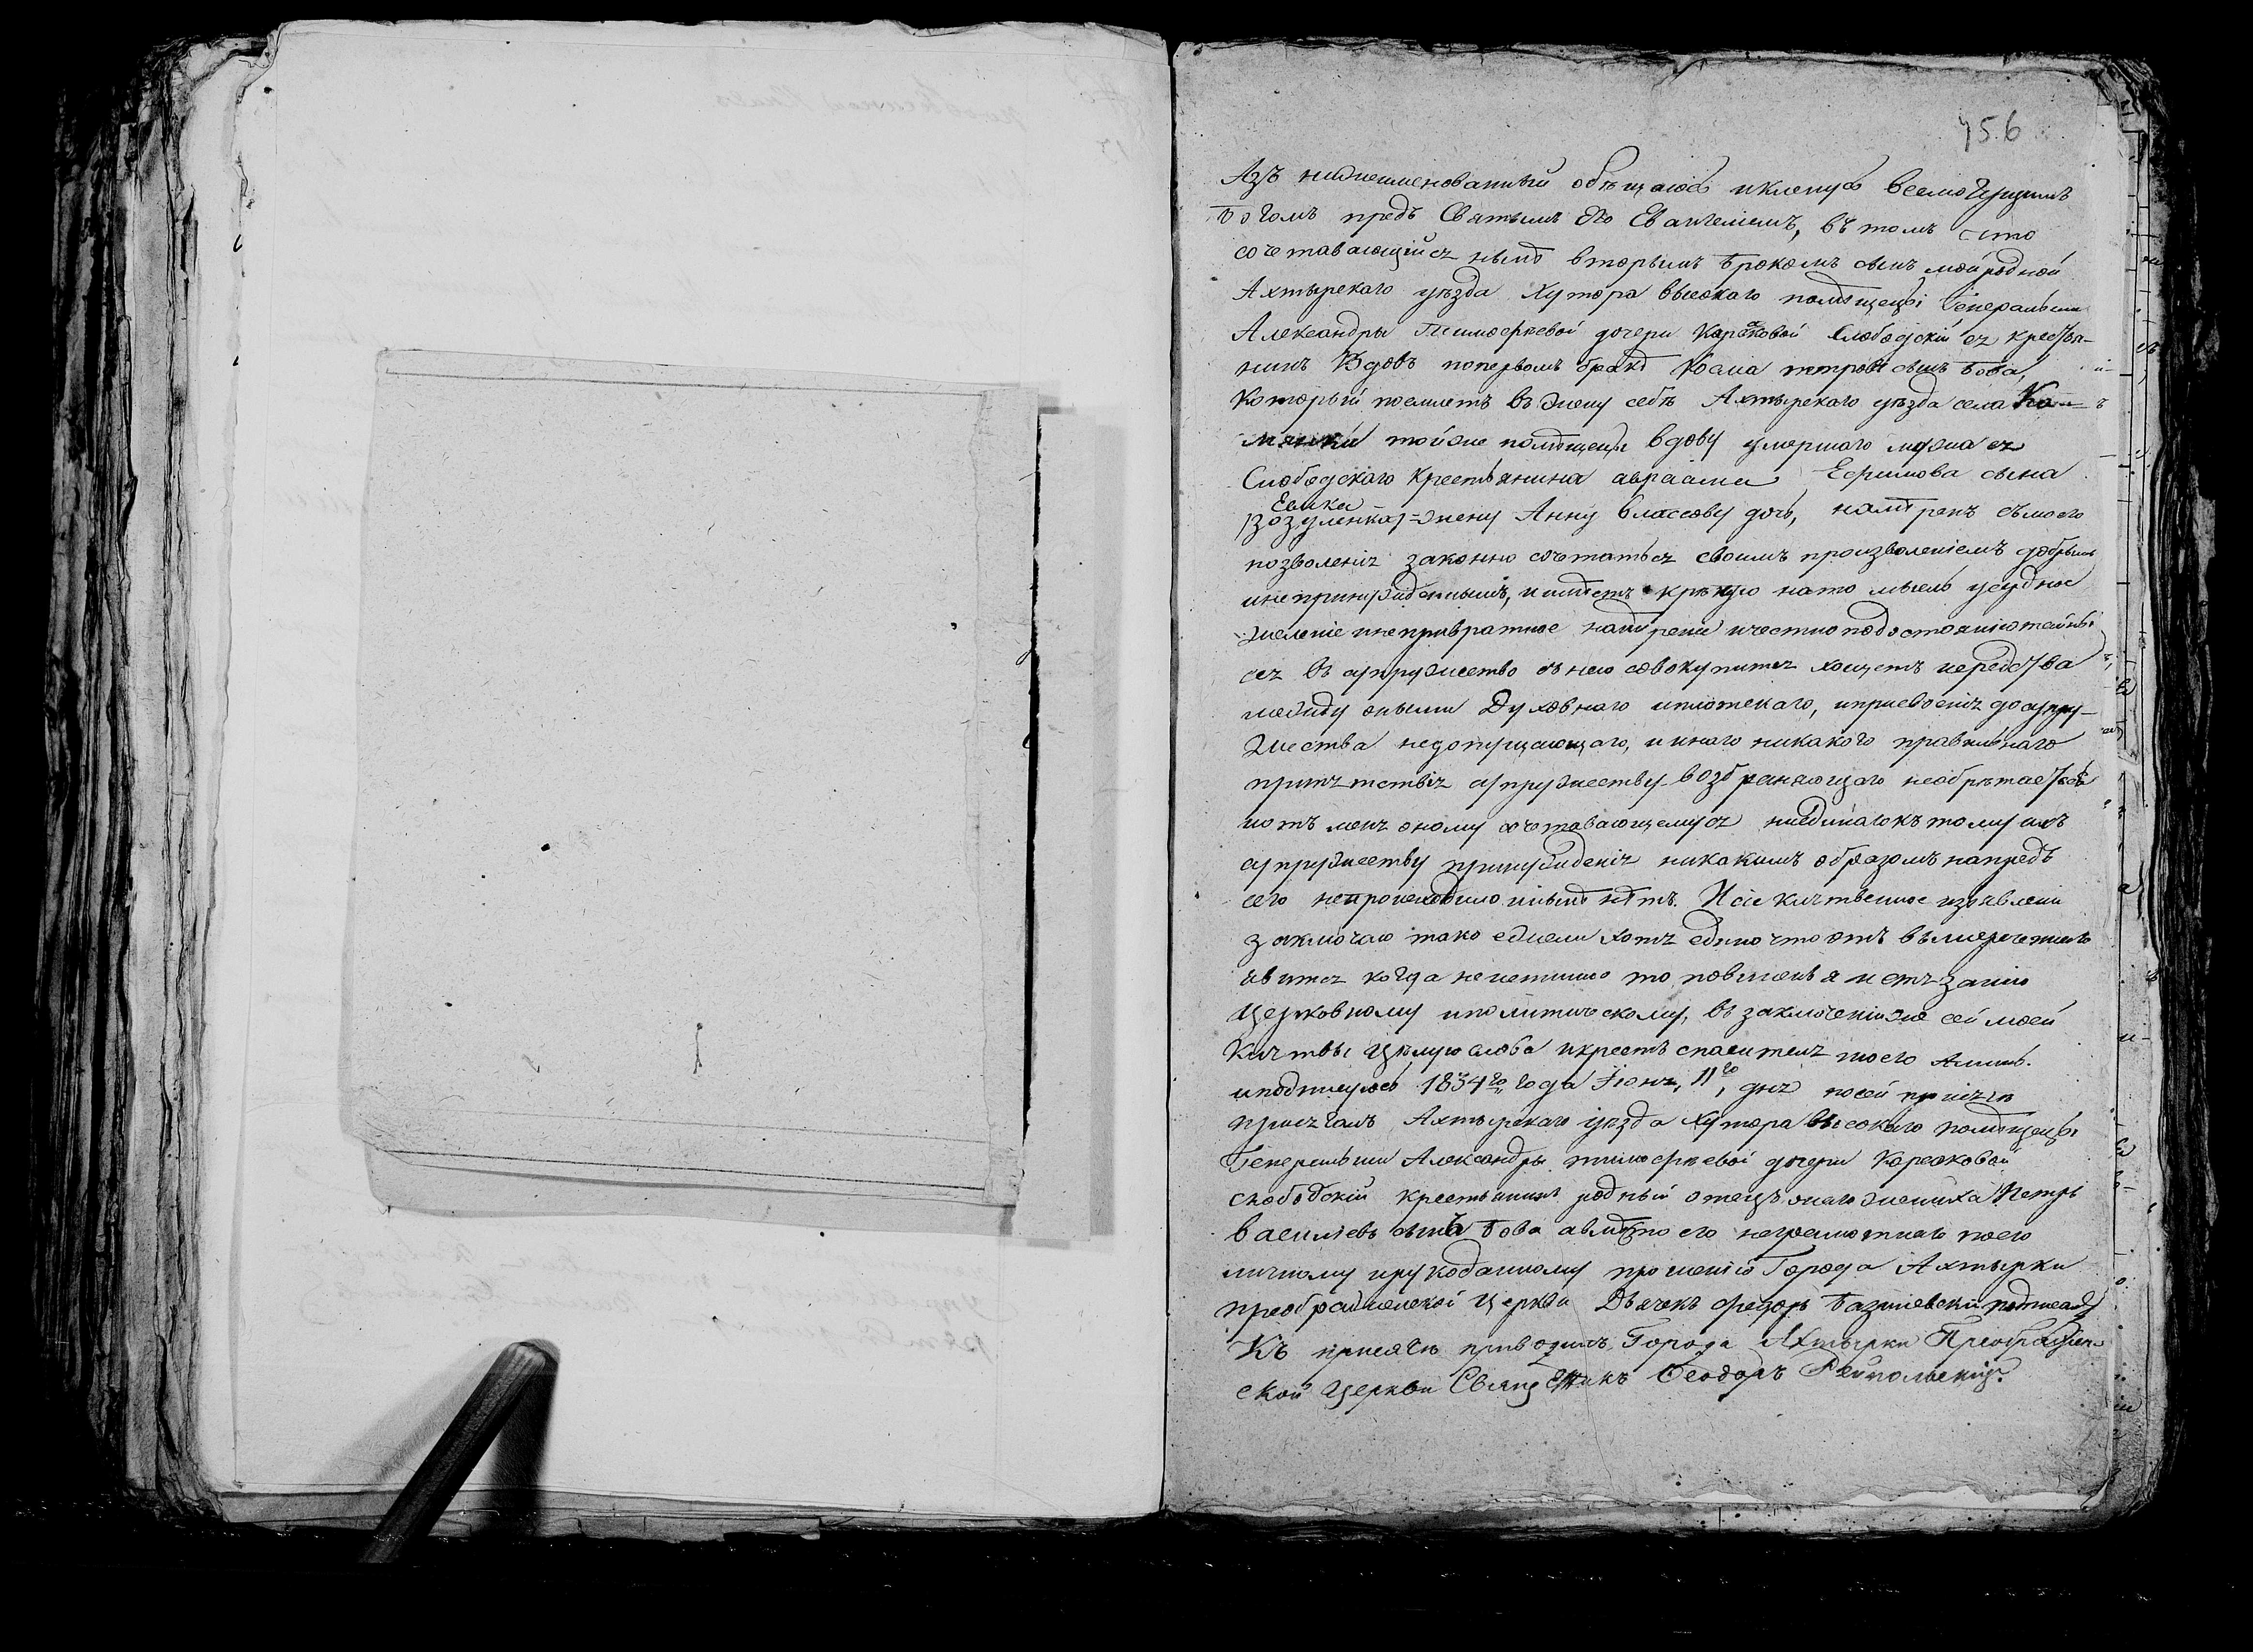 456
Азъ нижеименованный обѣщаюсь и кленусь всемогущимъ
Богомъ предъ Святымъ Его Евангелиемъ, въ томъ что
сочетавающийся нынѣ вторымъ бракомъ сынъ мой родной
Ахтырскаго уѣзда Хутора высокаго помѣщецы Генеральши
Александры Тимофеевой дочери Корсаковой Слободский ся крестья-
нинъ Вдовъ поперьвомъ бракѣ Косма петровъ сынъ Бова,
Который поемлетъ въ жену себѣ Ахтырскаго уѣзда села Ка-
мянки тойже помѣщецы вдову умершаго мужа ся
Слободскаго крестьянина авраама Ефимова сына
Зозуленка жену Анну власову дочь, намѣренъ съ моего
позволения законно сочетатися своимъ произволениемъ добрымъ
и непринужденнымъ, и имѣетъ крѣпкую на то мысль усердное
желение и непривратное намѣрение и честно подостоянию тайны
сея въ супружество съ нею совокупится хощетъ и средства
между оными Духовнаго и плотскаго, и присвоения до супру-
жества недопущающаго, и инаго никакого правильнаго
притятствия супружеству возбраняющаго необрѣтается
и отъ меня оному сочетавающемуся ниединаго къ тому ихъ
супружеству принуждения никакимъ образомъ напредъ
сего непроисходило и нынѣ нѣтъ. И сие клятвенное изъявление
заключаю тако ежели хотя едино что отъ вышереченныхъ
явится когда неистинно то повиненъ я истязанию
Церковному и политическому, въ заключении же сей моей
Клятвы цѣлую слова и крестъ спасителя моего Аминь.
и подпишуюсь 1834го года Июня, 11го, дня по сей присягѣ
присягалъ Ахтырскаго уѣзда Хутора высокаго помѣщецы
Генеральши Александры тимофеевой дочери Корсаковой
слободский крестьянинъ родный отецъ онаго жениха Петръ
василиевъ сынъ Бова а вмѣсто его неграмотнаго по его
личному и рукоданному прошению Города Ахтырки
преображенской Церкви Дьячекъ Федоръ Базилевский подписался
Къ присягѣ приводилъ Города Ахтырки Преображен-
ской Церкви Священникъ Феодоръ